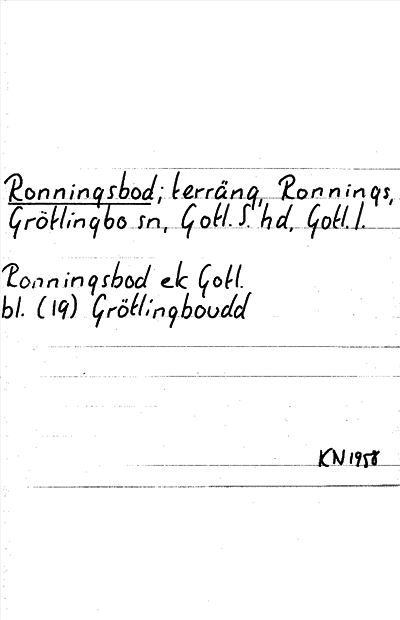 Ronningsbod; terräng, Ronnings,
Grötlingbo sn, Gotl. S. hd, Gotl. l.
Ronningsbod ek Gotl.
bl. (19) Grötlingboudd
KN 1958